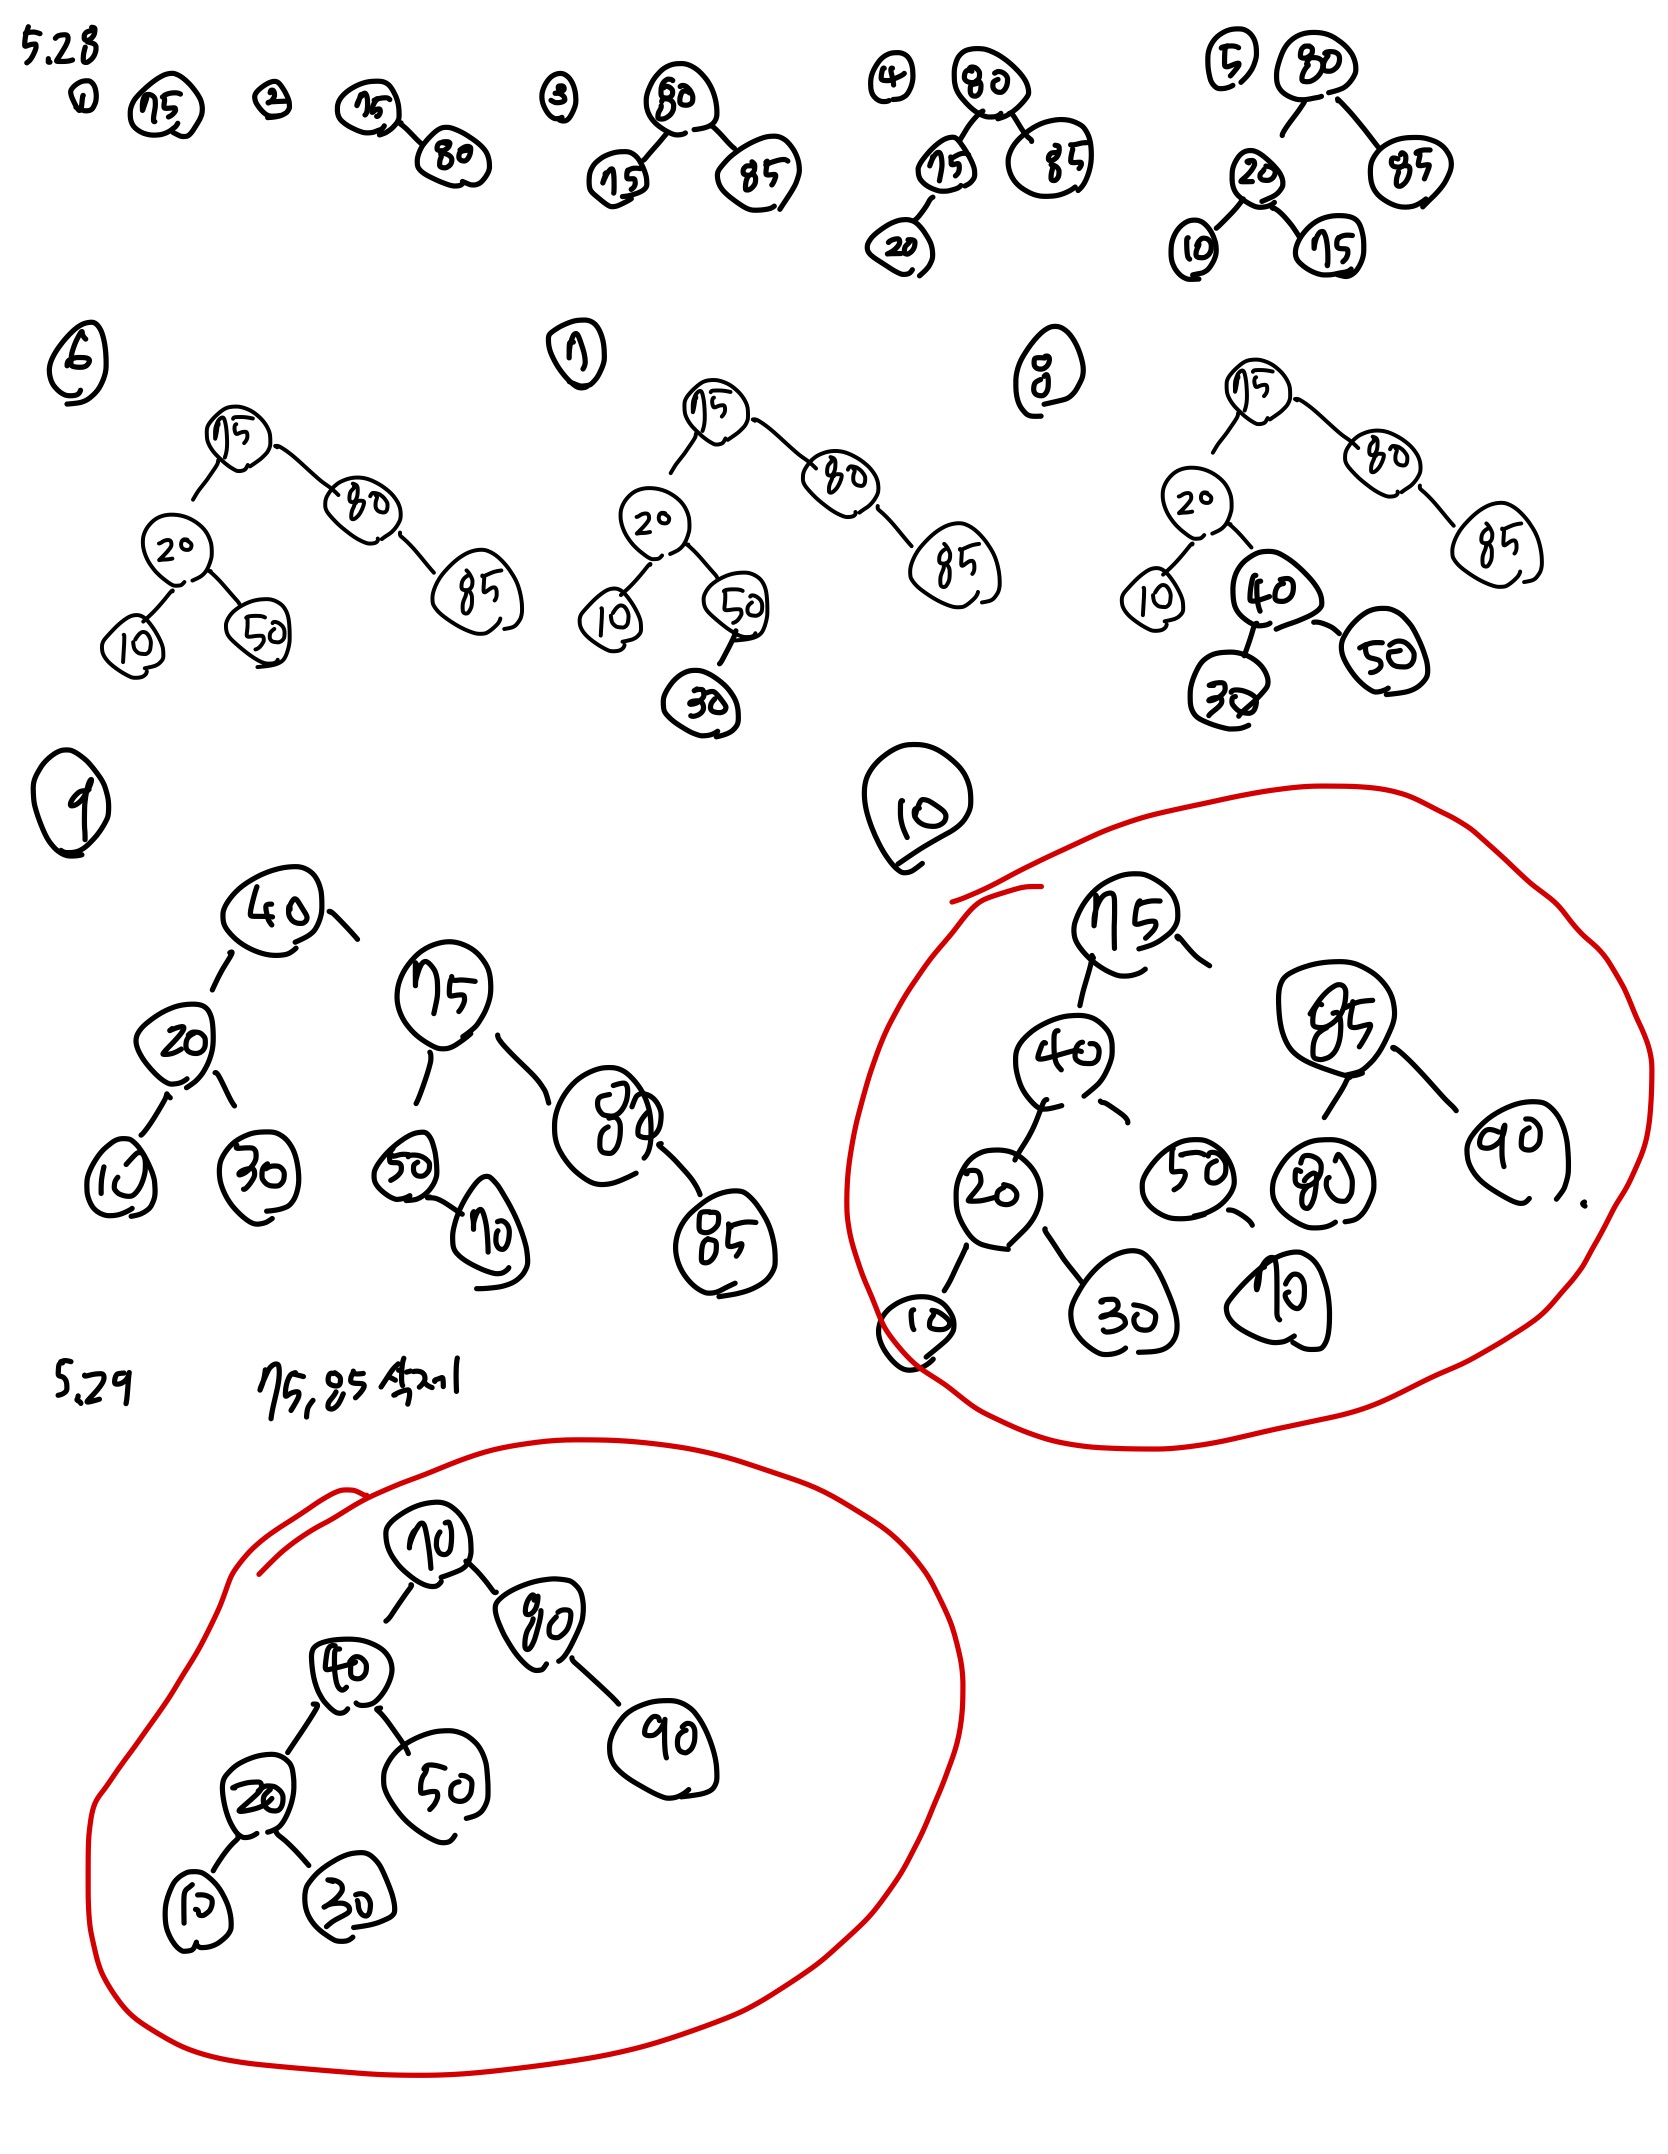 5.28
① 75 ② 75 80 ③ 80 75 85 ④ 80 75 85 20 ⑤ 80 20 85 10 75
⑥ 75 20 80 10 50 85 ⑦ 75 20 80 10 50 85 30 ⑧ 75 20 80 10 40 85 30 50
⑨ 40 20 75 10 30 50 80 70 85
⑩ 75 40 85 20 50 80 90 10 30 70
5.29 75, 85 삭제시
70
40 80
20 50 90
10 30